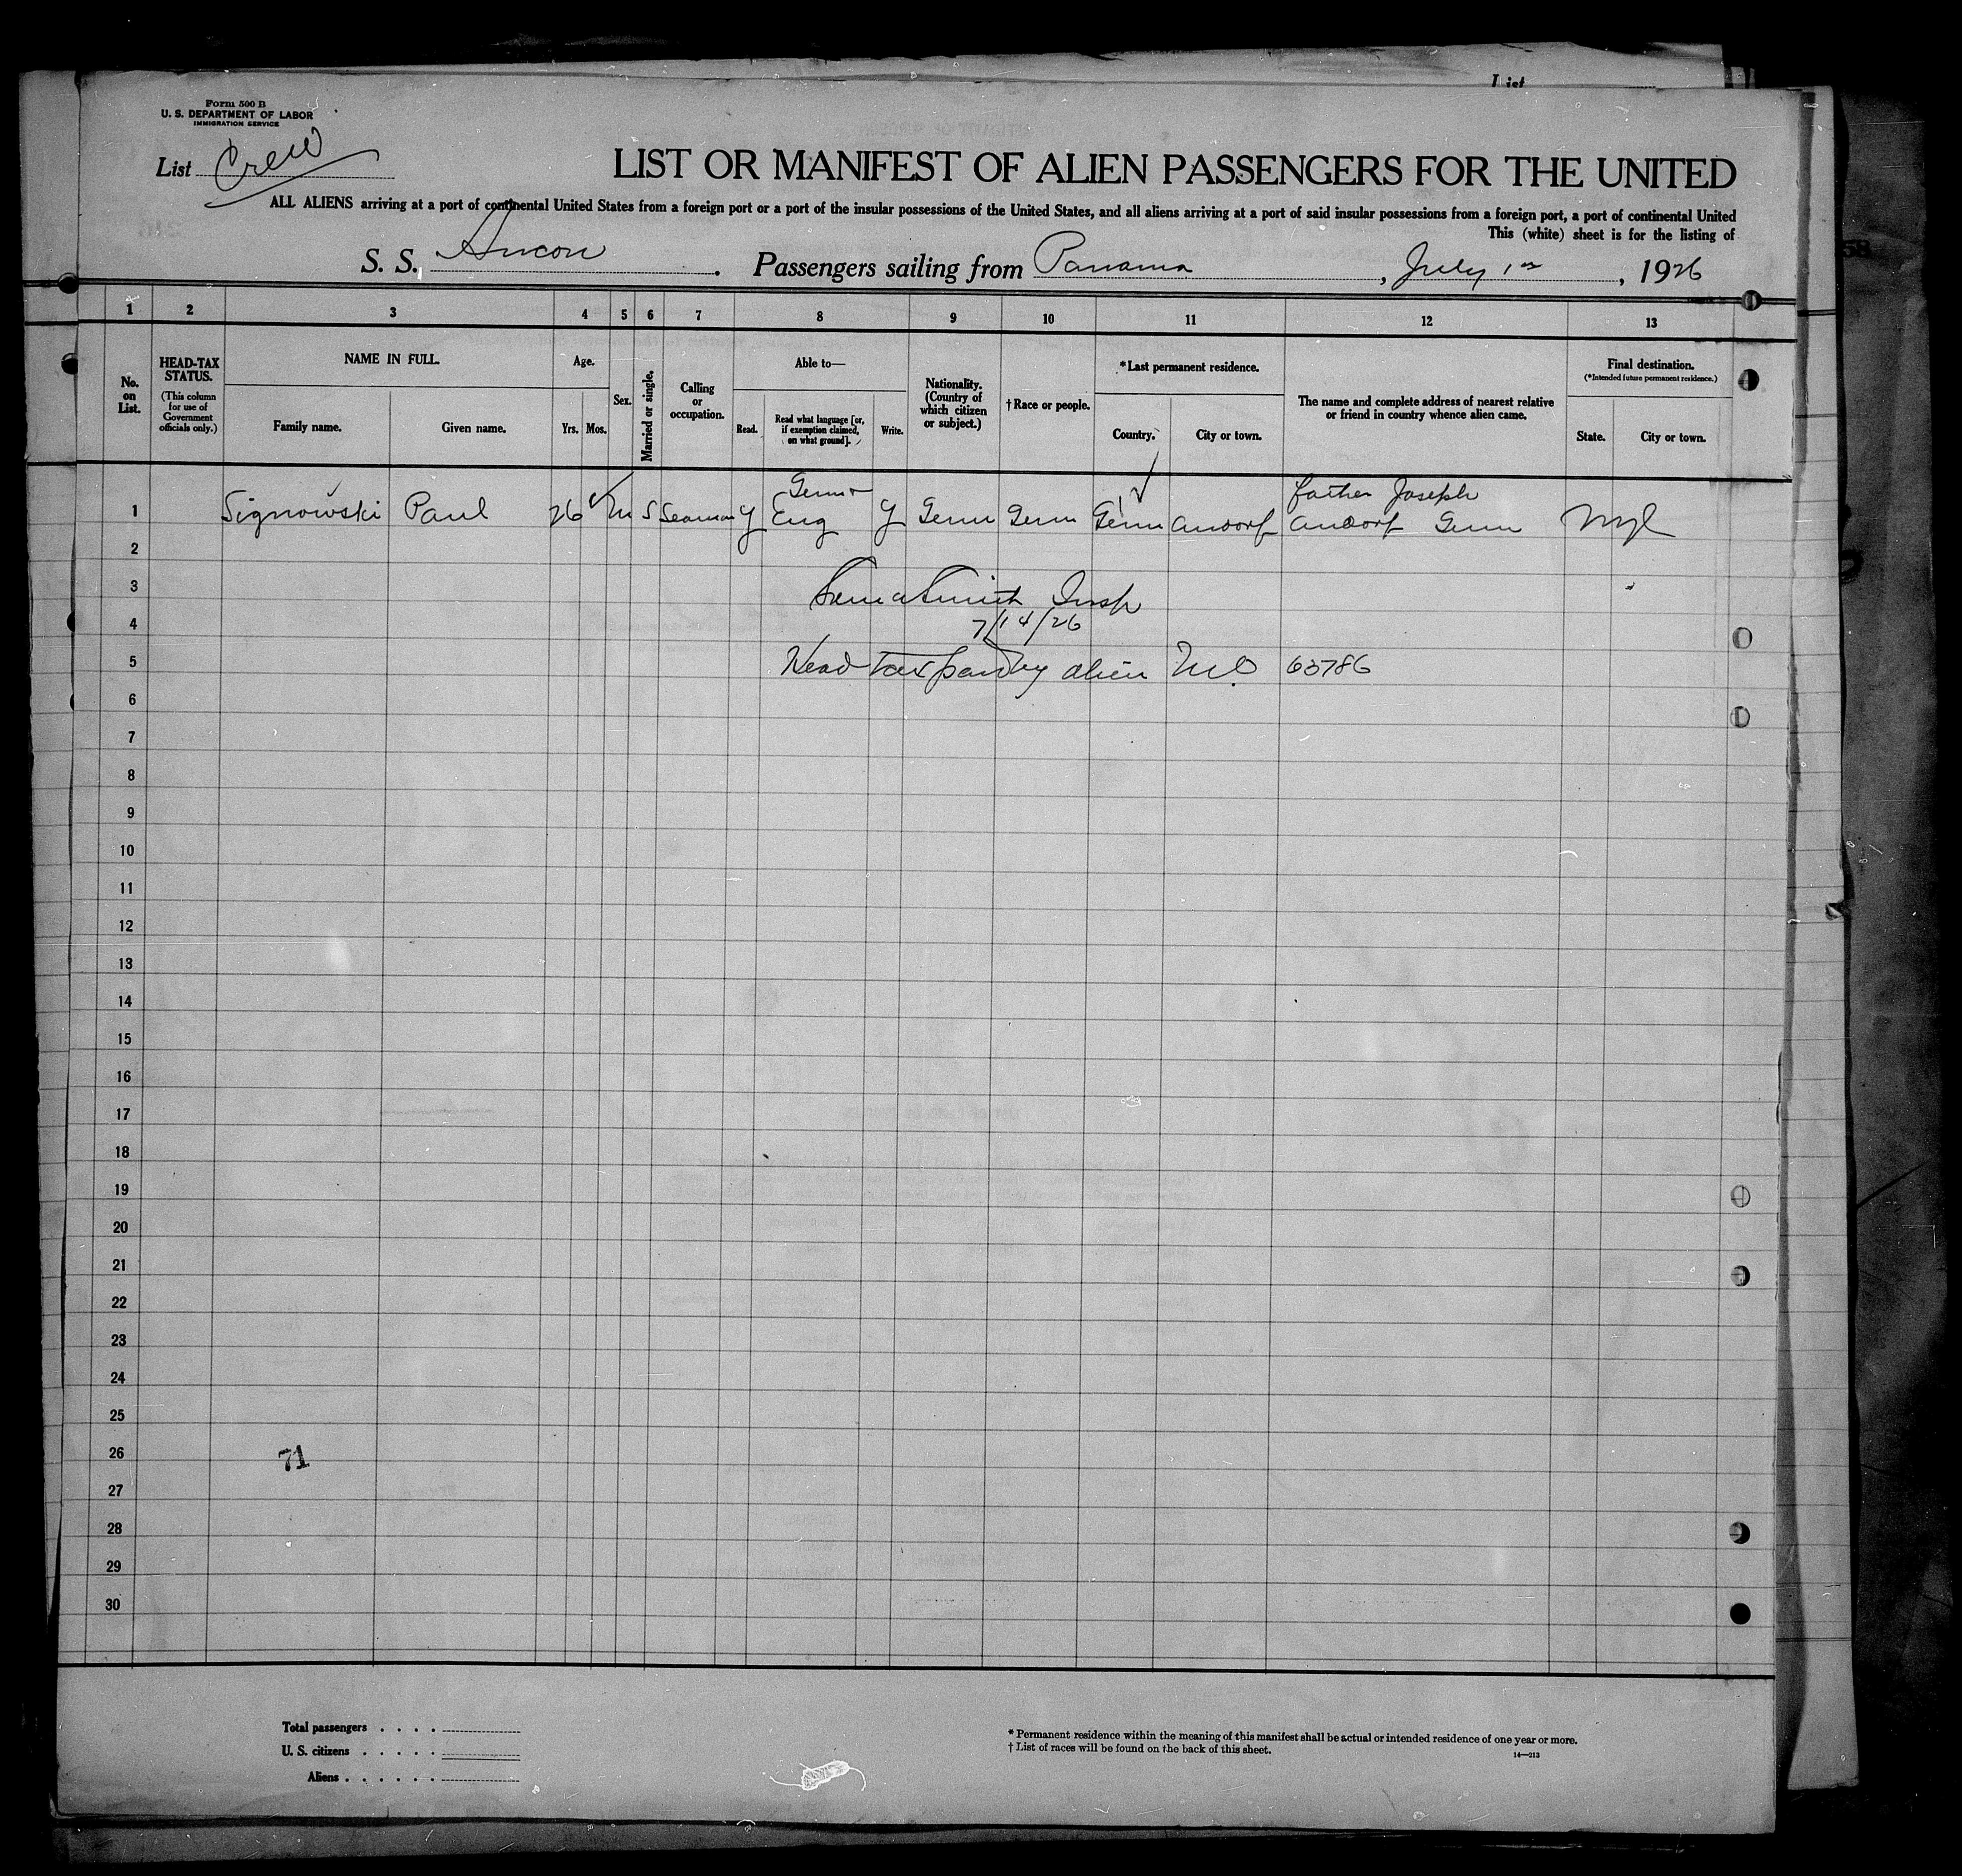 List
Form 500 B
U. S. DEPARTMENT OF LABOR
IMMIGRATION SERVICE
List Crew
LIST OR MANIFEST OF ALIEN PASSENGERS FOR THE UNITED
ALL ALIENS arriving at a port of continental United States from a foreign port or a port of the insular possessions of the United States, and all aliens arriving at a port of said insular possessions from a foreign port, a port of continental United
This (white) sheet is for the listing of
S. S. Ancon. Passengers sailing from Panama, July 1st, 1926
1 2 3 4 5 6 7 8 9 10 11 12 13
No. on List.
HEAD-TAX STATUS.
(This column for use of Government officials only.)
NAME IN FULL.
Family name. Given name.
Age.
Yrs. Mos.
Sex.
Married or single.
Calling or occupation.
Able to—
Read. Read what language [or, if exemption claimed, on what ground]. Write.
Nationality. (Country of which citizen or subject.)
†Race or people.
*Last permanent residence.
Country. City or town.
The name and complete address of nearest relative or friend in country whence alien came.
Final destination.
(*Intended future permanent residence.)
State. City or town.
Germ father Joseph
1 Signowski Paul 26 M S Seaman Y Eng Y Germ Germ Germ Andorf Andorf Germ
2
3 Smith Insp
4 7/14/26
5 Head tax paid by alien 63786
6
7
8
9
10
11
12
13
14
15
16
17
18
19
20
21
22
23
24
25
26 71
27
28
29
30
Total passengers . . . .
U. S. citizens . . . . .
Aliens . . . . . .
* Permanent residence within the meaning of this manifest shall be actual or intended residence of one year or more.
† List of races will be found on the back of this sheet.
14—213
58